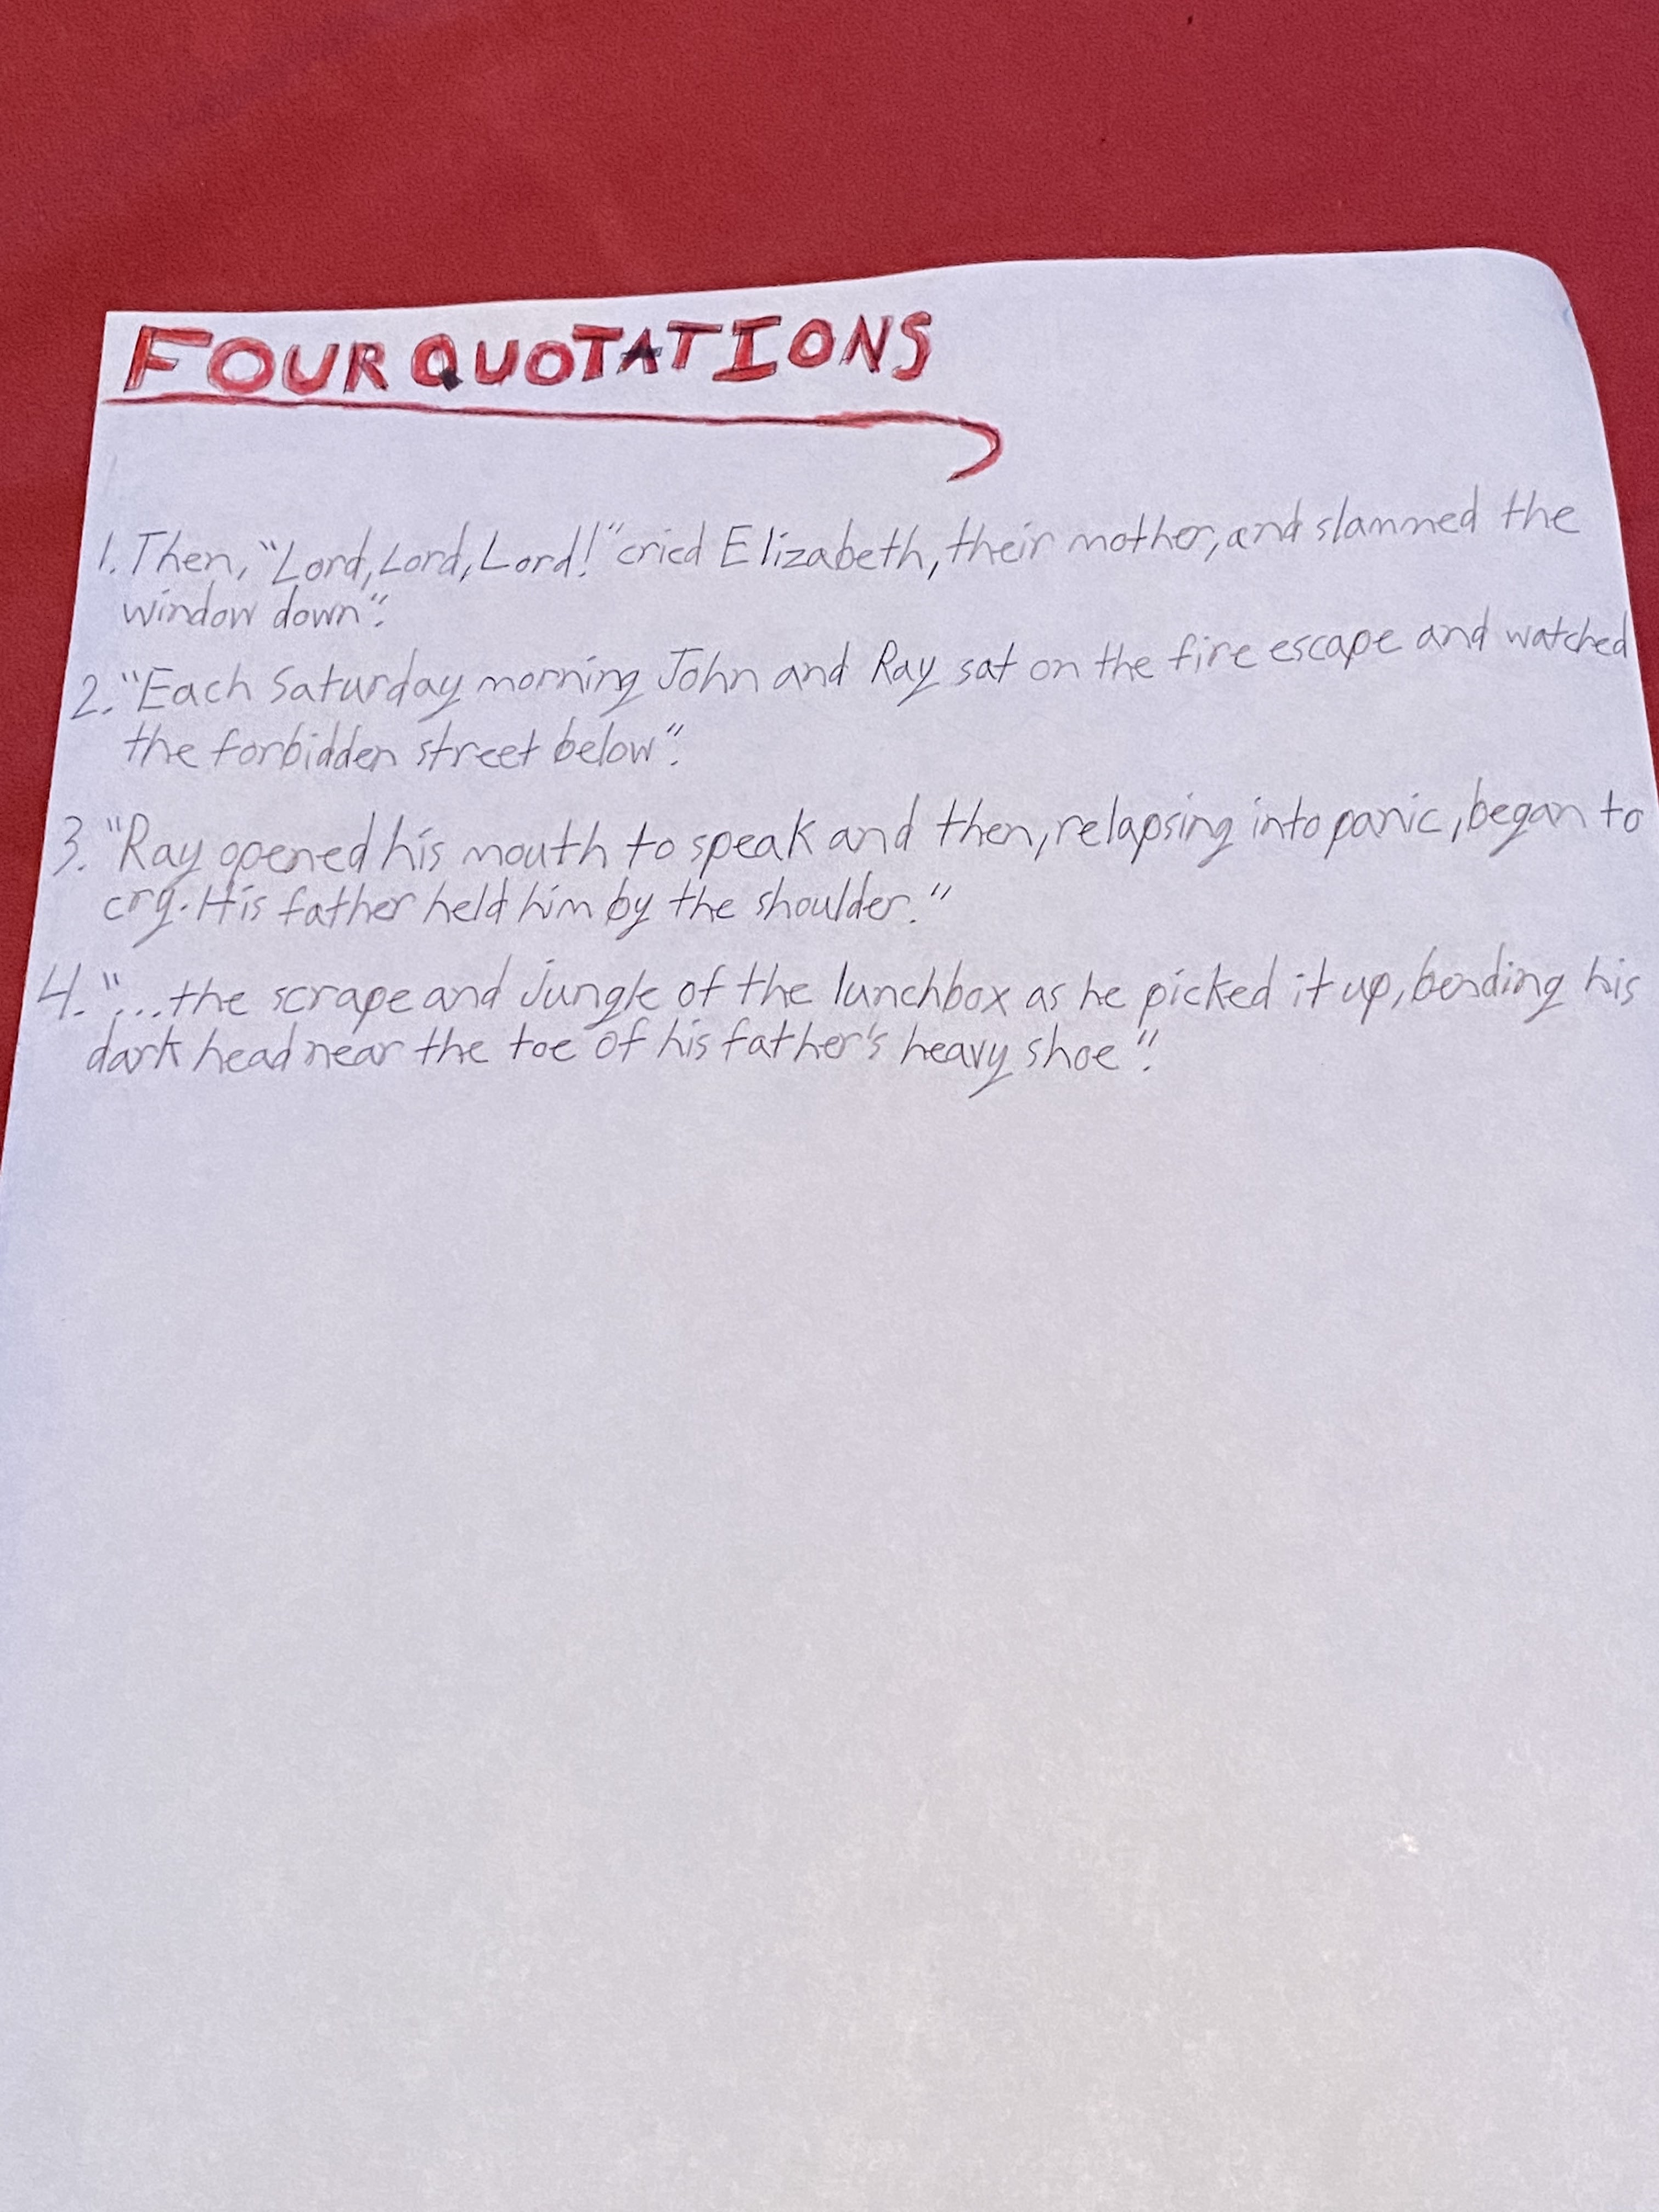 FOUR QUOTATIONS
1. Then, "Lord, Lord, Lord!" cried Elizabeth, their mother, and slammed the
window down".
2. "Each Saturday morning John and Ray sat on the fire escape and watched
the forbidden street below".
3. "Ray opened his mouth to speak and then, relapsing into panic, began to
cry. His father held him by the shoulder."
4. "...the scrape and jungle of the lunchbox as he picked it up, bending his
dark head near the toe of his father's heavy shoe".